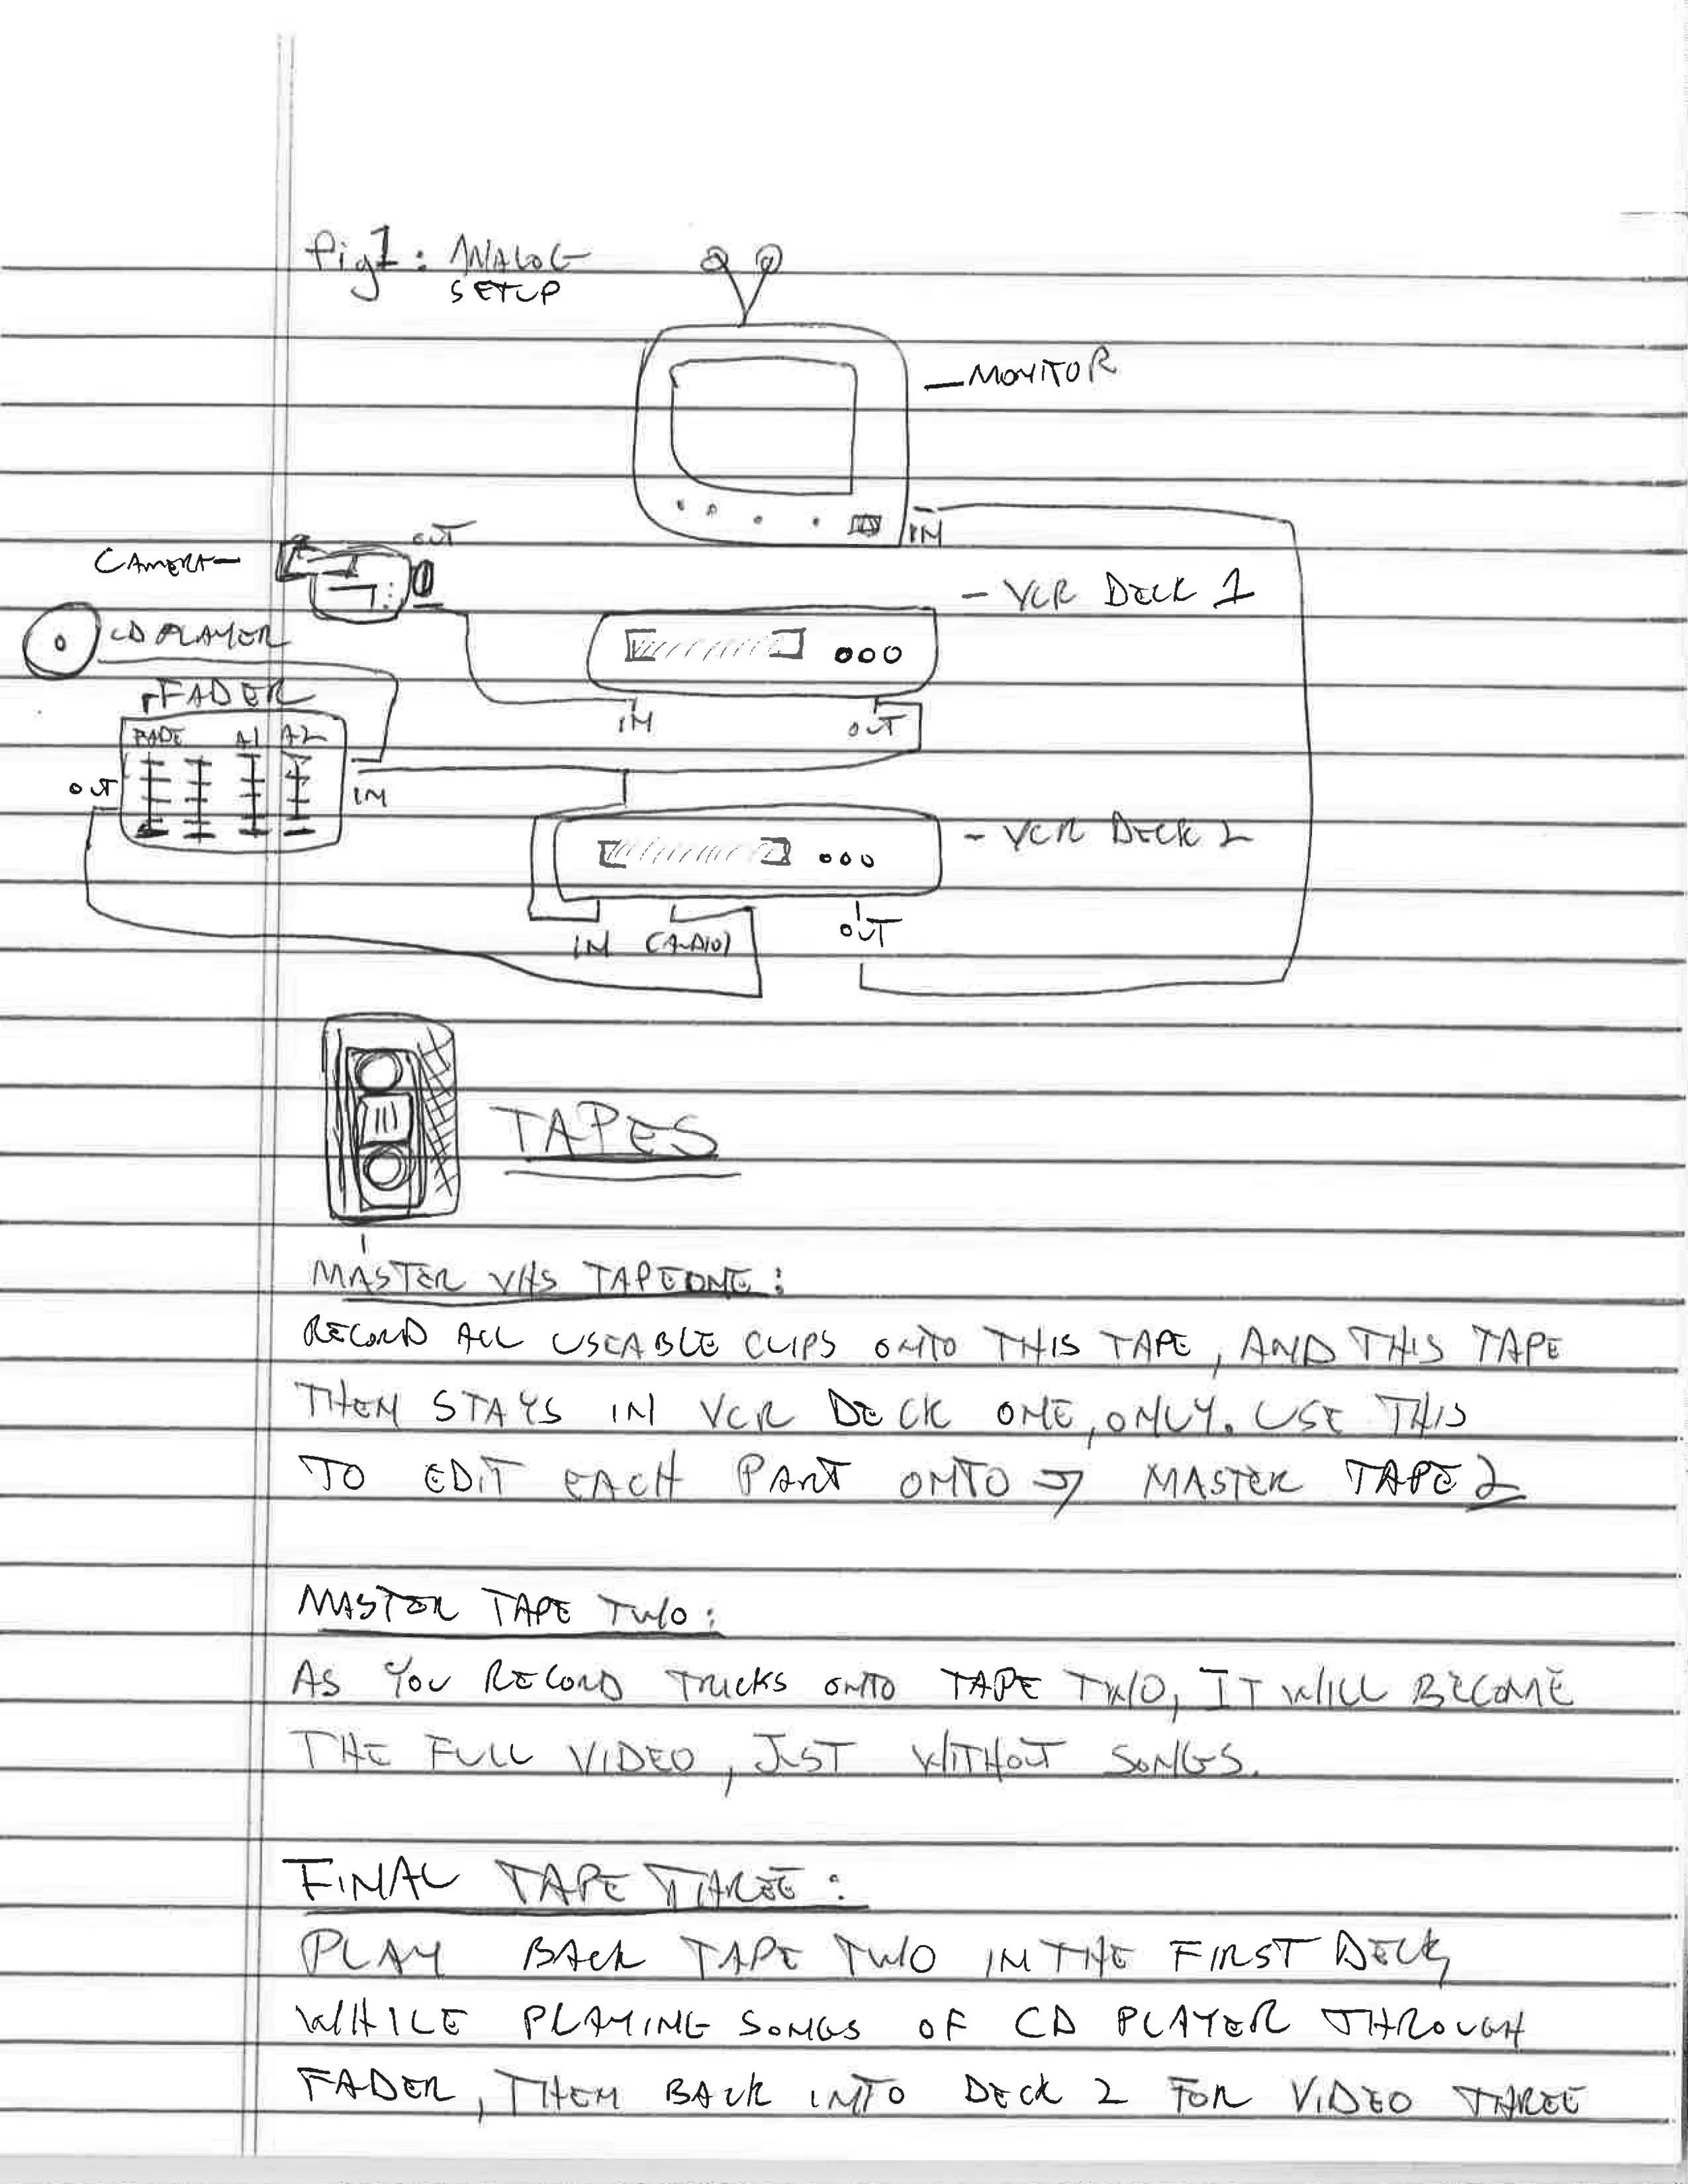 fig 1: ANALOG
SETUP
- MONITOR
IN
OUT
CAMERA -
- VCR DECK 1
CD PLAYER
FADER
FADE A1 A2
IN
OUT
OUT
IN
- VCR DECK 2
IN (AUDIO)
OUT
TAPES
MASTER VHS TAPE ONE:
RECORD ALL USEABLE CLIPS ONTO THIS TAPE, AND THIS TAPE
THEN STAYS IN VCR DECK ONE, ONLY. USE THIS
TO EDIT EACH PART ONTO → MASTER TAPE 2
MASTER TAPE TWO:
AS YOU RECORD TRICKS ONTO TAPE TWO, IT WILL BECOME
THE FULL VIDEO, JUST WITHOUT SONGS.
FINAL TAPE THREE:
PLAY BACK TAPE TWO IN THE FIRST DECK,
WHILE PLAYING SONGS OF CD PLAYER THROUGH
FADER, THEN BACK INTO DECK 2 FOR VIDEO THREE